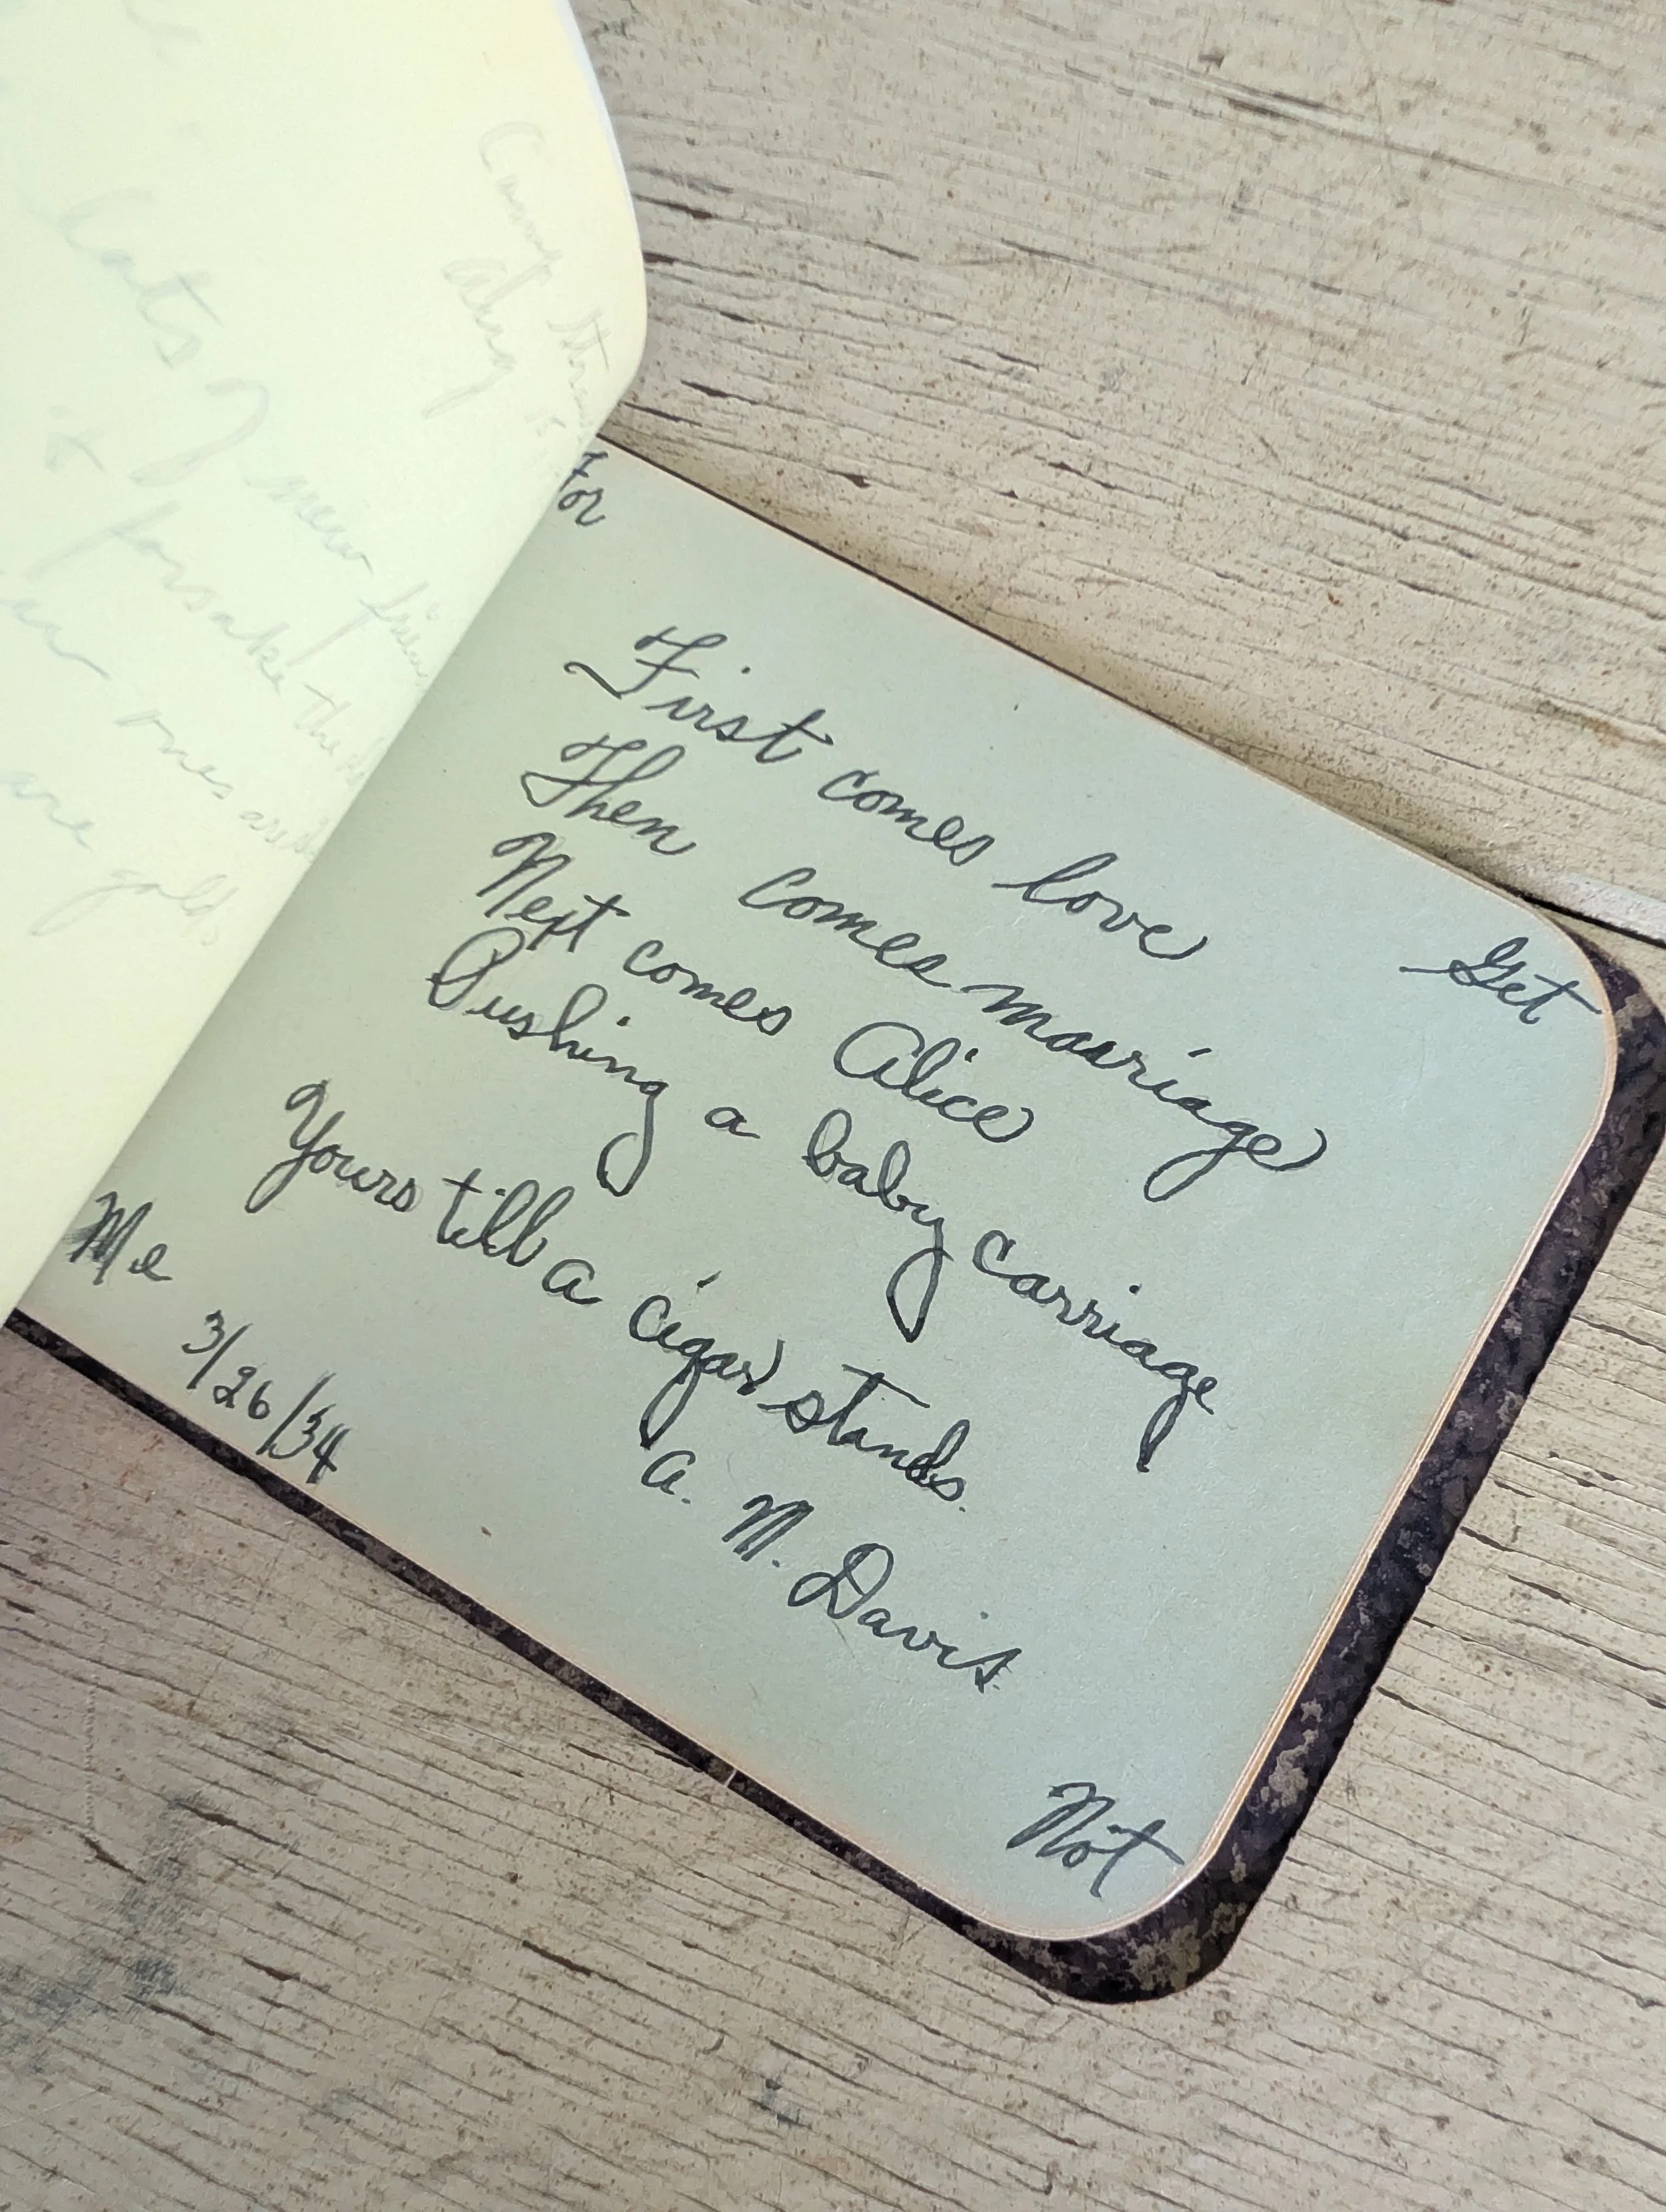 Come
along
lats?
new
forsake the
ones and
are gold.
For
Get
First comes love
Then comes marriage
Next comes Alice
Pushing a baby carriage
Yours till a cigar stands.
A. M. Davis.
Me
Not
3/26/34